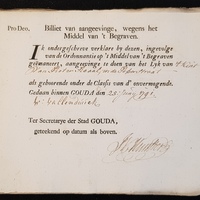 Pro Deo. Billiet van aangeevinge, wegens het
Middel van 't Begraven.
Ik ondergeschreve verklare by desen, ingevolge
van de Ordonnantie op 't Middel van 't Begraven
geëmaneert, aangeevinge te doen van het Lyk van 't Kind
van Pieter
als gehoorende onder de Classis van d' onvermogende.
Gedaan binnen GOUDA den 23 Juny 1791
Ter Secretarye der Stad GOUDA,
geteekend op datum als boven.